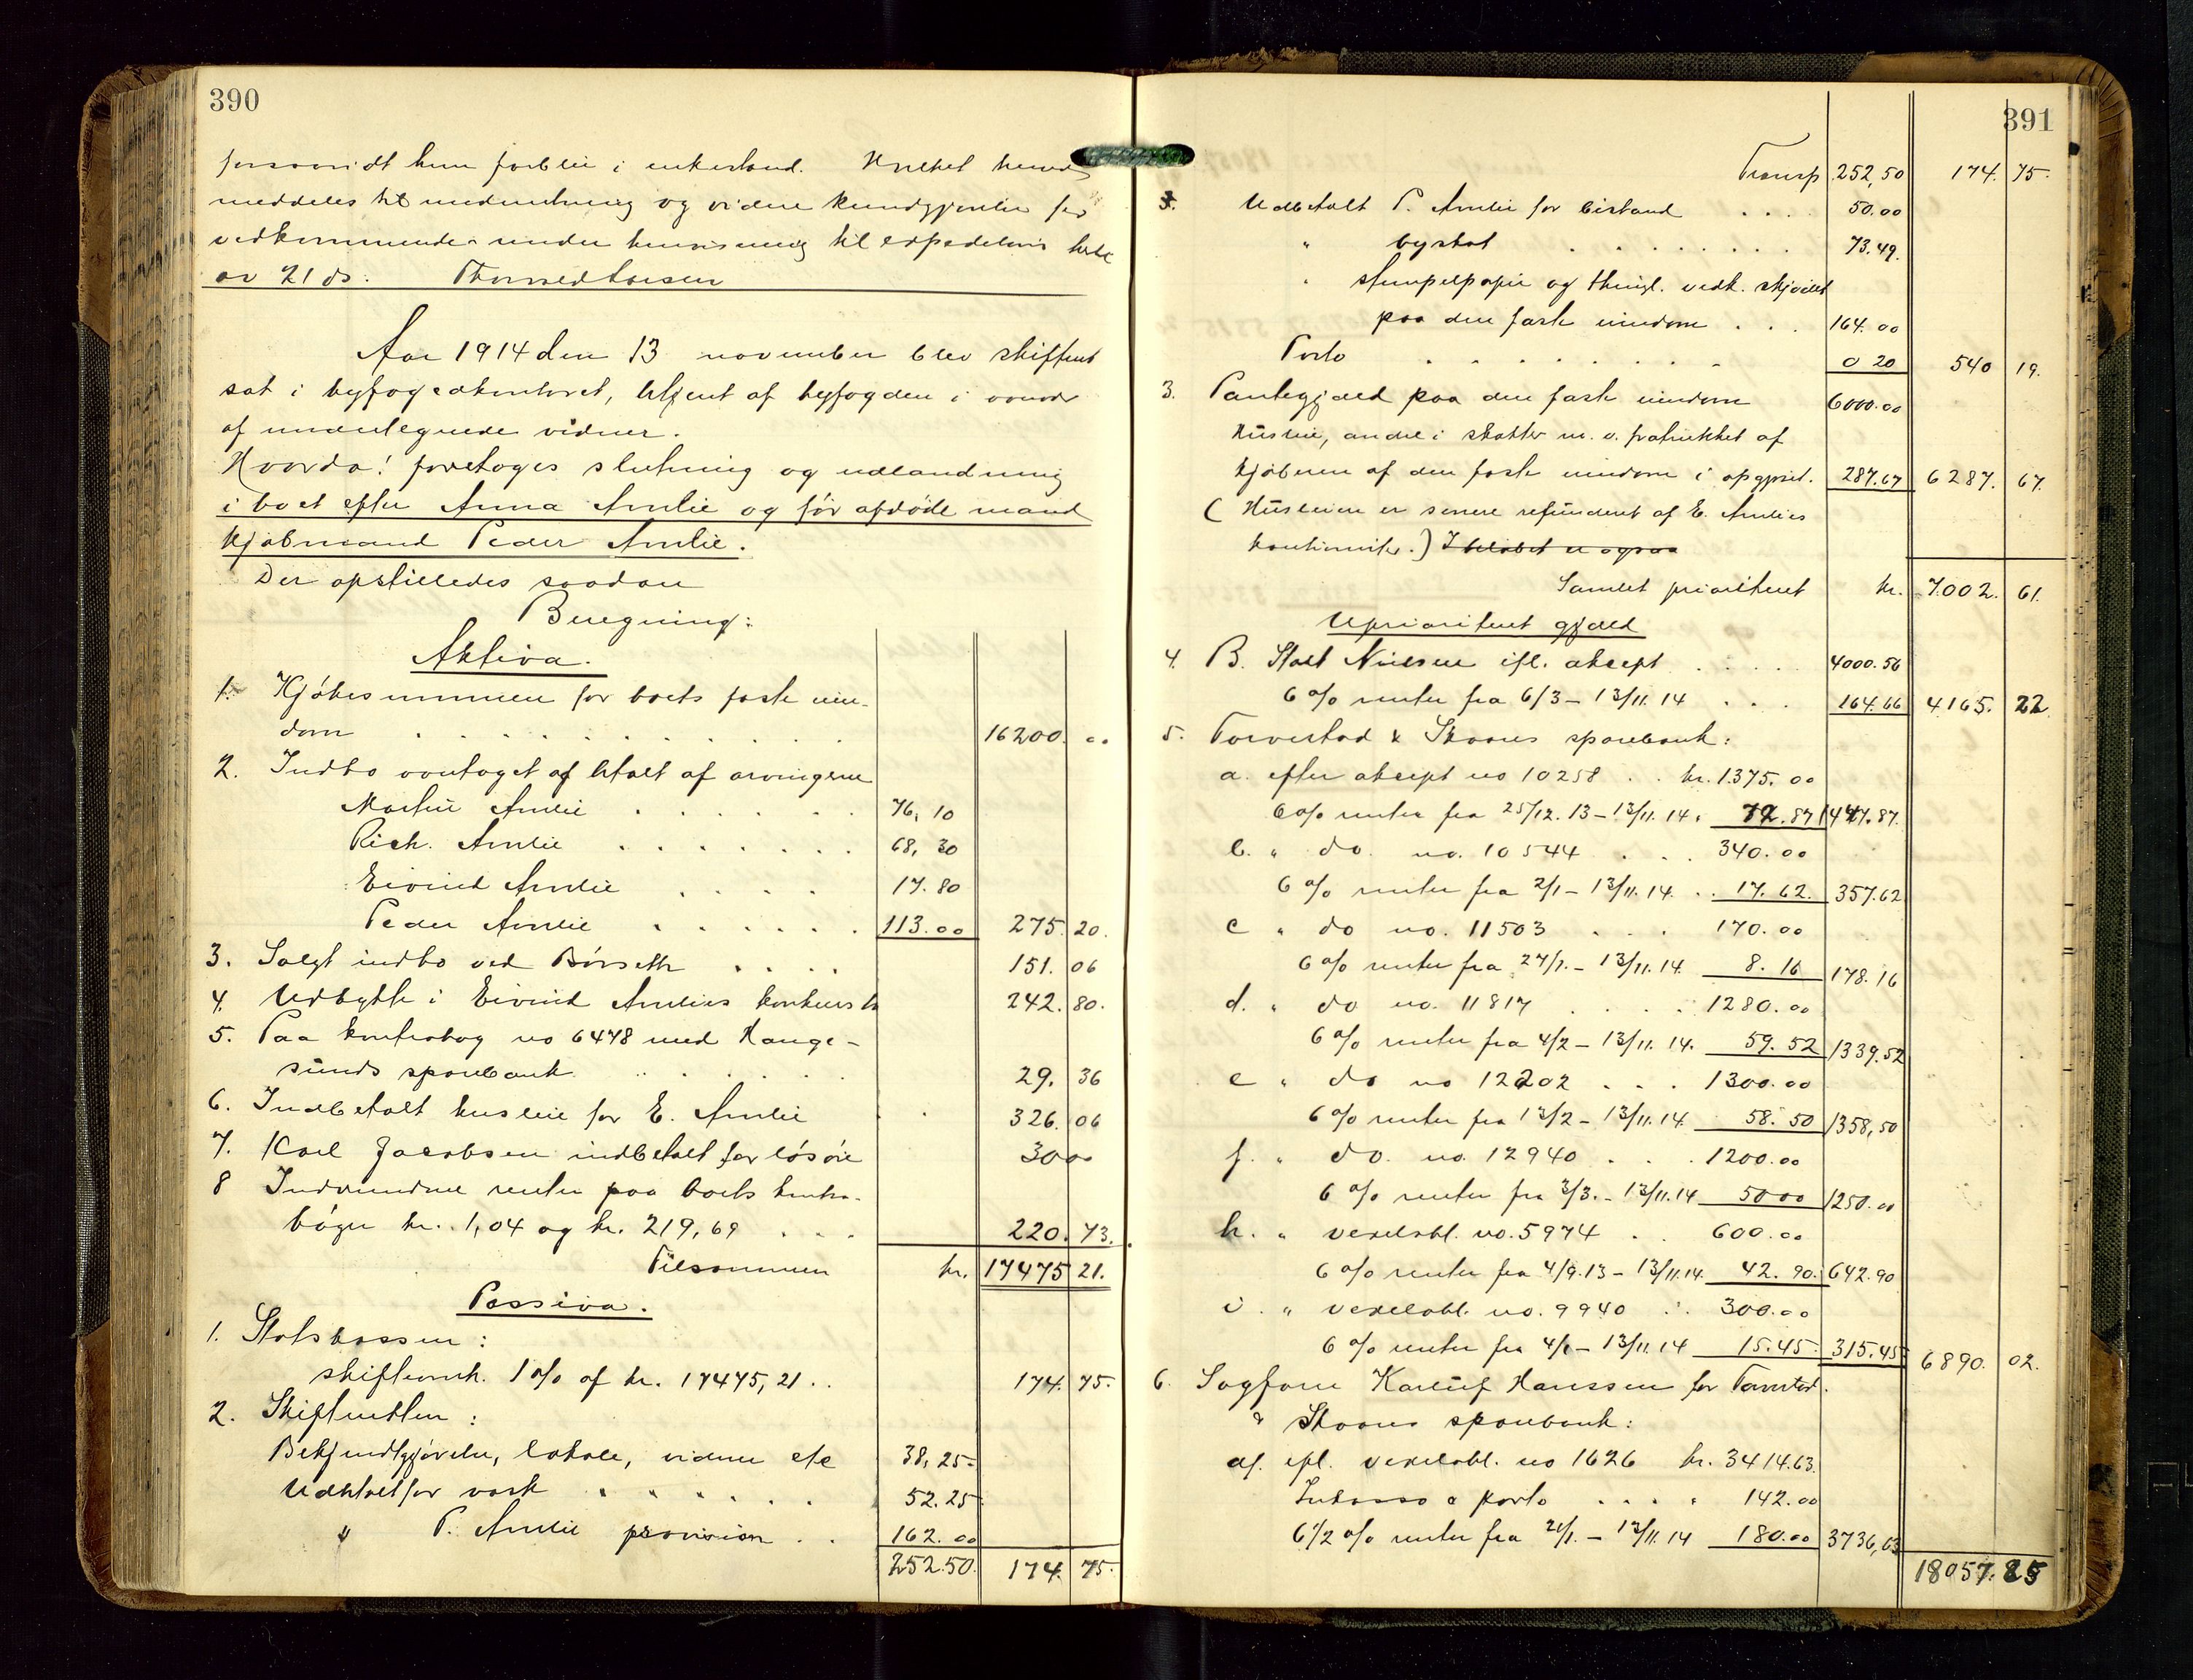 390
forsaavidt hun forblir i enkestand. Hvilket herved
meddeles til underretning og videre kundgjørelse for
vedkommende under henvisning til expedition herfra
av 21 ds. Thorvald Larsen
Aar 1914 den 13 november blev skifteret
sat i byfogedkontoret, betjent af byfogden i overvær
af undertegnede vidner.
Hvorda! foretoges slutning og udlodning
i boet efter Anna Amlie og før afdøde mand
kjøbmand Peder Amlie.
Der opstilledes saadan
Beregning:
Aktiva.
1. Kjøbesummen for boets faste eien-
dom . . . . . 16200. 00
2. Indbo overtaget og betalt af arvingerne
Martin Amlie . . . . 76,10
Rich. Amlie . . . . 68,30
Eivind Amlie . . . . 17.80
Peder Amlie . . . . 113.00 275 20.
3. Solgt indbo ved Børseth . . . . 151. 06
4. Udbytte i Eivind Amlies konkursbo 242. 80.
5. Paa kontrabog no 6478 med Hauge-
sunds sparebank . . . . 29. 36
6. Indbetalt husleie for E. Amlie 326. 06
7. Karl Jacobsen indbetalt for løsøre 30 00
8 Indvundne renter paa boets kontra-
bøger kr. 1,04 og kr. 219,69 . . . 220. 73.
Tilsammen kr. 17475 21.
Passiva.
1. Statskassen:
skifteomk. 1% af kr. 17475,21 . . 174. 75.
2. Skifteretten:
Bekjendtgjørelse, lokale, vidner etc 38,25
Udbetalt for vask . . . . 52.25
" P. Amlie provision . . 162.00
252.50 174. 75.
391
Transp 252,50 174. 75.
Udbetalt P. Amlie for bistand . . . . 50.00
" byskat . . . . 73.49.
" stempelpapir og thingl. vedk. skjødet
paa den faste eiendom . . . 164.00
Porto . . . . 0 20 540 19.
3. Pantegjæld paa den faste eiendom 6000.00
Husleie, andel i skatter m. v. fratrukket af
kjøberen af den faste eiendom i opgjøret. 287.67 6287. 67.
( Husleien er senere refunderet af E. Amlies
kautionister.) I beløbet er ogsaa
Samlet prioriteret kr. 7002. 61.
Uprioriteret gjæld
4. B. Stolt Nielsen ifl. aksept . . . . 4000.56
6% renter fra 6/3 - 13/11. 14 . . . 164.66 4165. 22
5. Torvestad & Skaares sparebank:
a. efter aksept no 10258 . . kr. 1375.00
6% renter fra 25/12. 13 - 13/11. 14. 72.87 1447.87.
b. " do. no. 10544 . . . 340.00
6% renter fra 2/1 - 13/11. 14. . . 17.62. 357.62
c " do no. 11503 . . . 170.00
6% renter fra 27/1. - 13/11. 14. 8.16 178.16
d. " do no. 11817 . . . . 1280.00
6% renter fra 4/2 - 13/11. 14. 59.52 1339.52
e " do no 12202 . . . 1300.00
6% renter fra 13/2 - 13/11. 14. 58.50 1358,50
f. " do. no. 12940 . . . 1200.00
6% renter fra 3/3. - 13/11. 14 50 00 1250.00
h. " vexelobl. no. 5974 . . 600.00
6% renter fra 4/9. 13 - 13/11. 14. 42.90. 642.90
i. " vexelobl. no. 9940 . . 300.00
6% renter fra 4/1 - 13/11. 14 15.45. 315.45 6890. 02.
6. Sagfører Karluf Hanssen for Torvestad
& Skaares sparebank:
a. ifl. vexelobl. no 1626 kr. 3414.63.
Inkasso & porto . . . . 142.00
6 1/2 % renter fra 21/1. - 13/11. 14 180.00 3736,63
18057.85